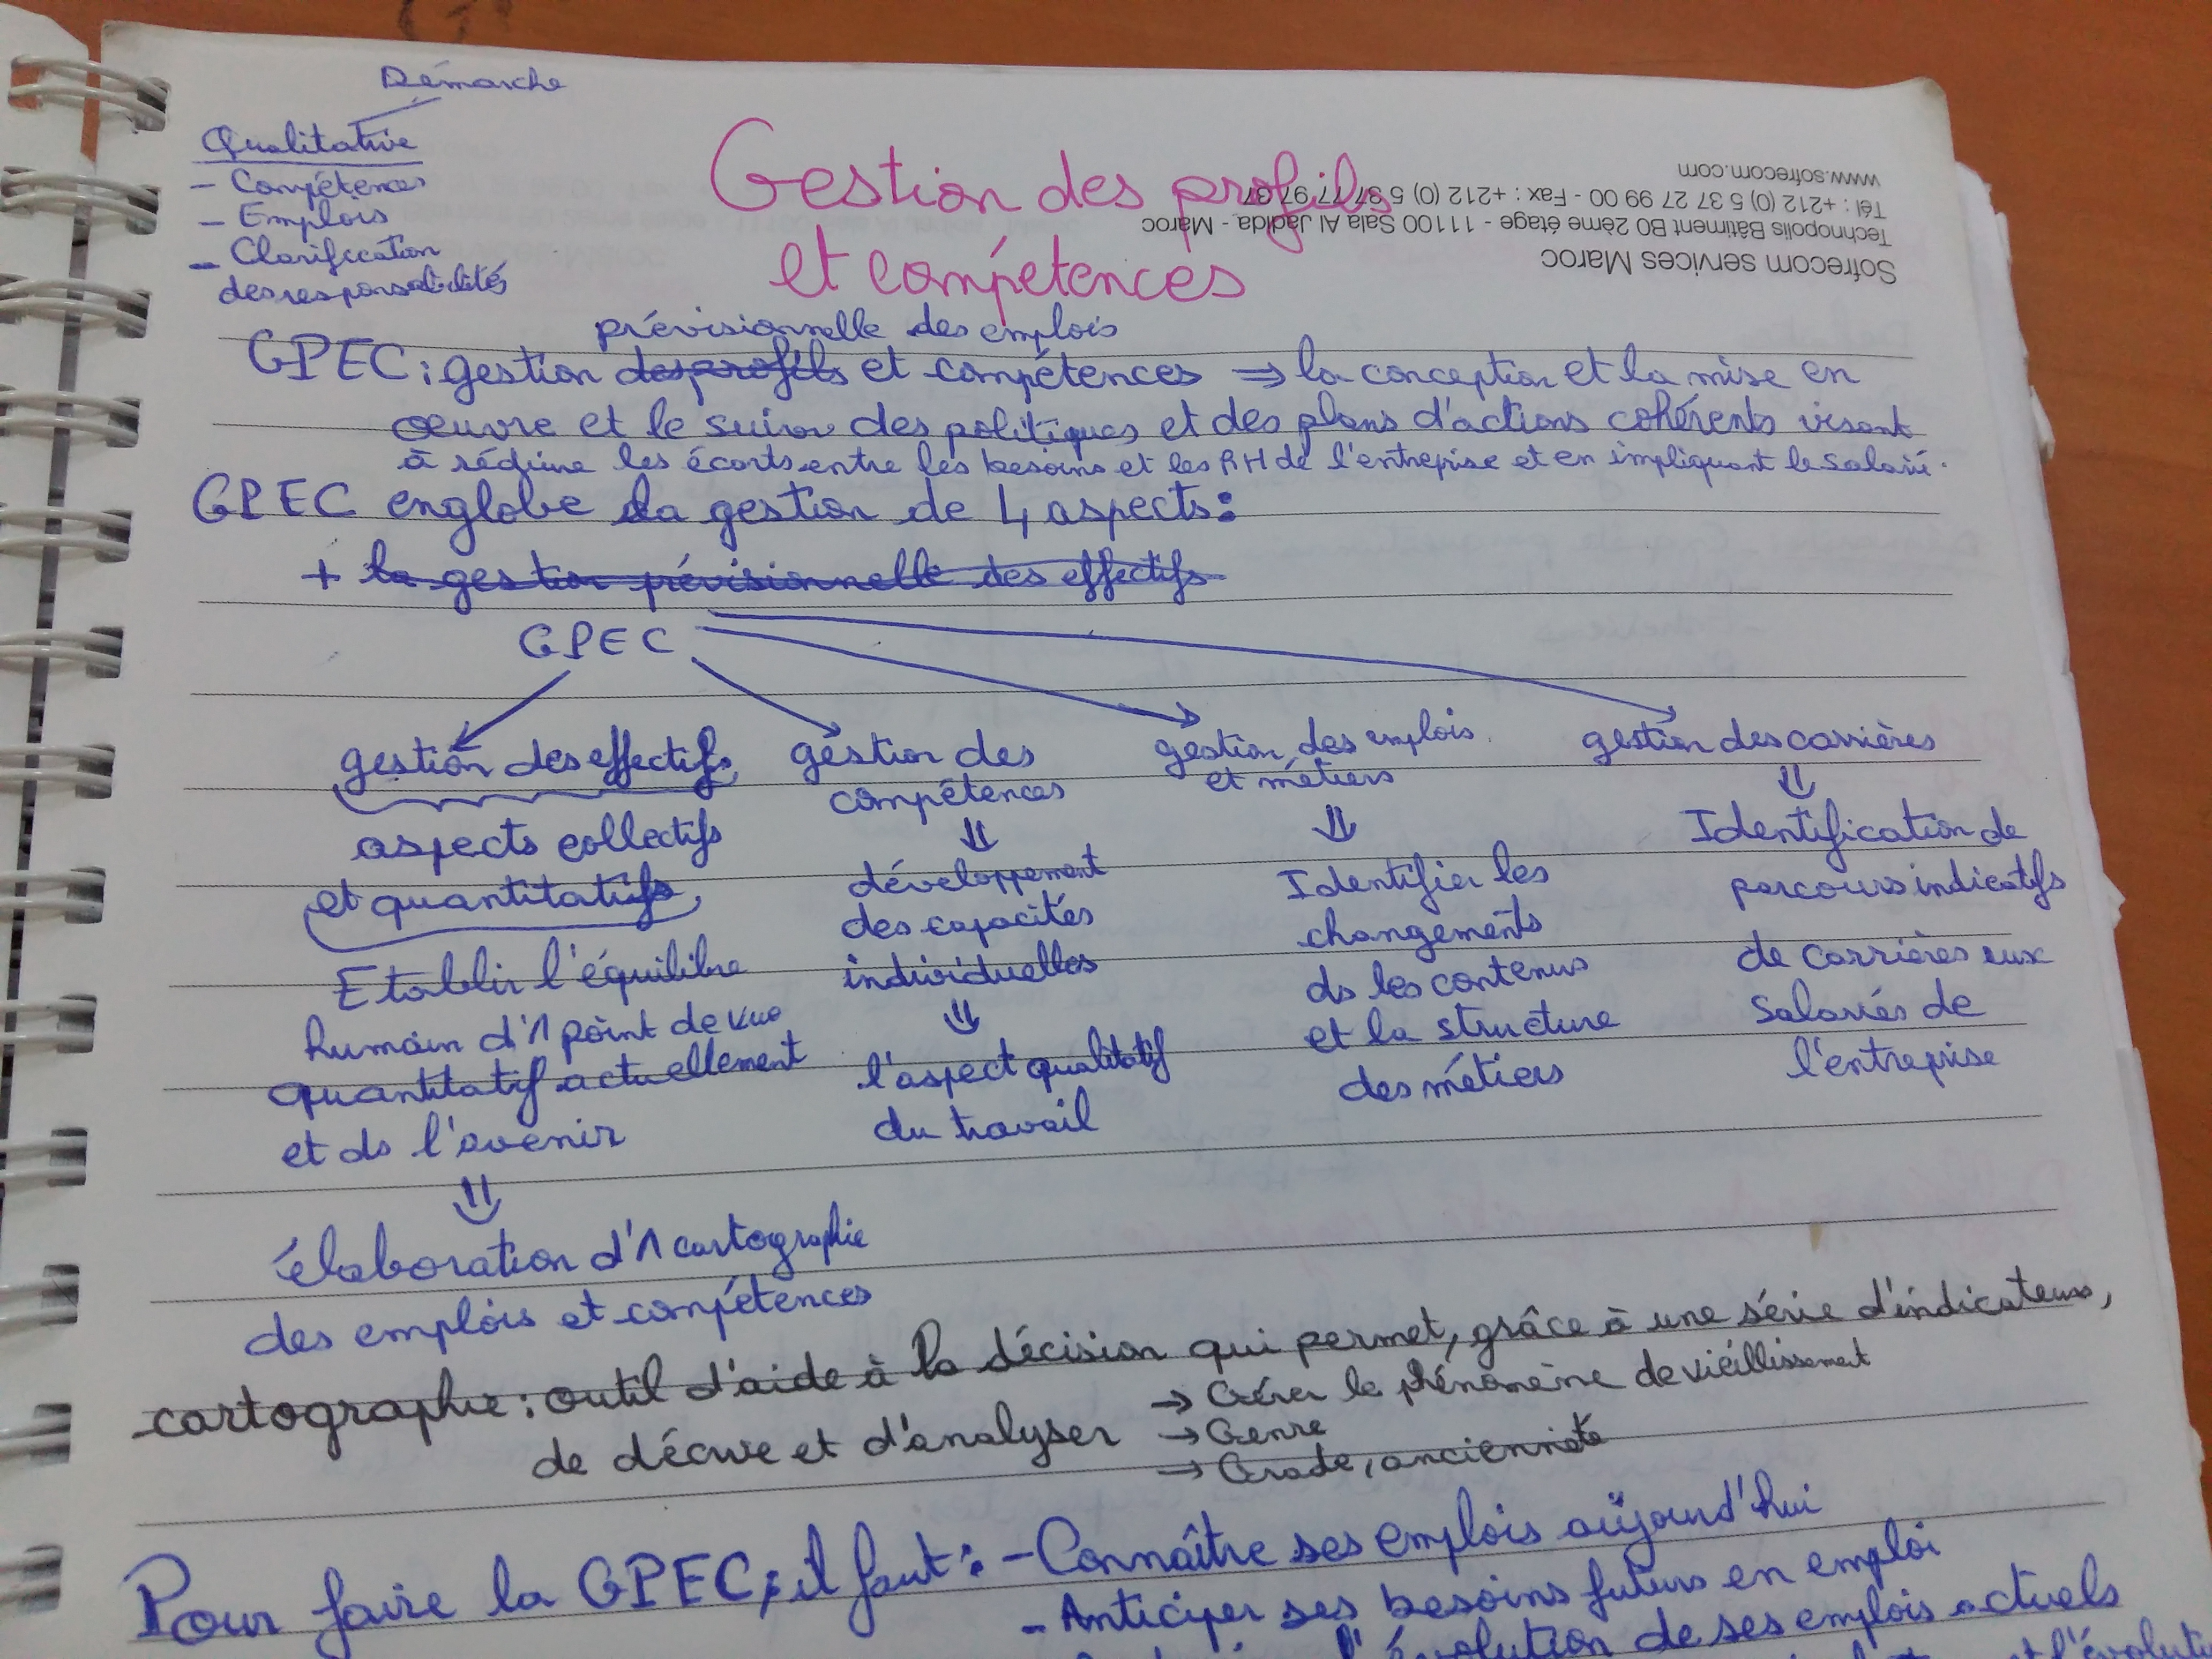 Démarche
Qualitative
- Compétences
- Emplois
- Clarification
des responsabilités
Gestion des profils
et compétences
Sofrecom services Maroc
Technopolis Bâtiment B0 2ème étage - 11100 Sala Al Jadida - Maroc
Tél : +212 (0) 5 37 27 99 00 - Fax : +212 (0) 5 37 77 97 37
www.sofrecom.com
prévisionnelle des emplois
GPEC : gestion des profils et compétences ⇒ la conception et la mise en
œuvre et le suivi des politiques et des plans d'actions cohérents visant
à réduire les écarts entre les besoins et les RH de l'entreprise et en impliquant le salarié.
GPEC englobe la gestion de 4 aspects :
+ la gestion prévisionnelle des effectifs
GPEC
gestion des effectifs
aspects collectifs
et quantitatifs
Etablir l'équilibre
humain d'1 point de vue
quantitatif actuellement
et ds l'avenir
⇓
élaboration d'1 cartographie
des emplois et compétences
gestion des
compétences
⇓
développement
des capacités
individuelles
⇓
l'aspect qualitatif
du travail
gestion des emplois
et métiers
⇓
Identifier les
changements
ds les contenus
et la structure
des métiers
gestion des carrières
⇓
Identification de
parcours indicatifs
de carrières aux
salariés de
l'entreprise
- cartographie : outil d'aide à la décision qui permet, grâce à une série d'indicateurs,
de décrire et d'analyser → Gérer le phénomène de vieillissement
→ Genre
→ Grade, ancienneté
Pour faire la GPEC, il faut : - Connaître ses emplois aujourd'hui
- Anticiper ses besoins futurs en emploi
évolution de ses emplois actuels